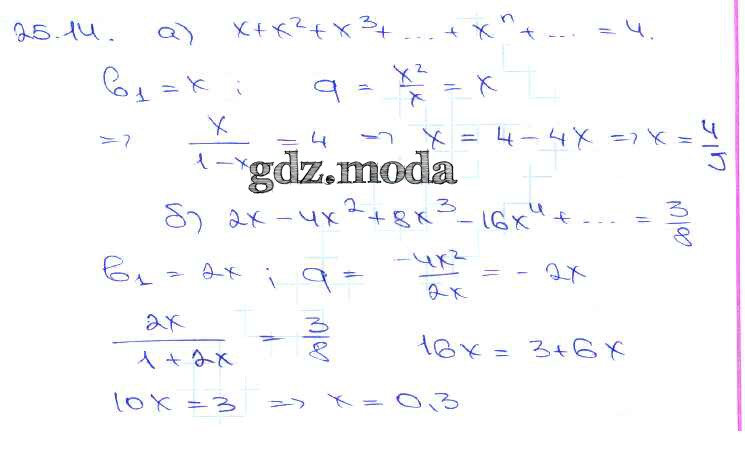 25.14. а) x + x² + x³ + ... + xⁿ + ... = 4.
b₁ = x ; q = x²/x = x
=> x/(1-x) = 4 => x = 4 - 4x => x = 4/5
gdz.moda
б) 2x - 4x² + 8x³ - 16x⁴ + ... = 3/8
b₁ = 2x ; q = -4x²/2x = - 2x
2x/(1+2x) = 3/8 16x = 3+6x
10x = 3 => x = 0,3